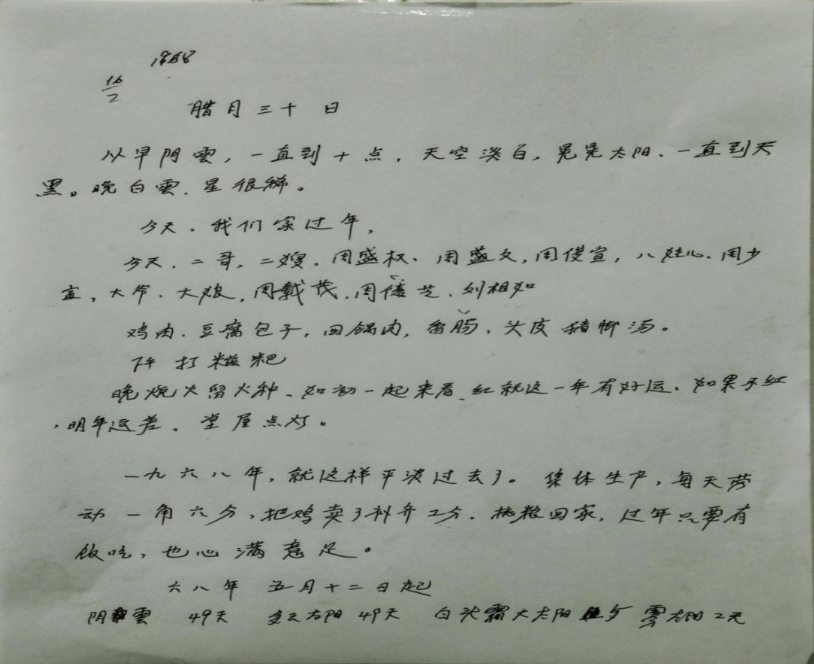 1968
16/2
腊月三十日
从早阴雲，一直到十点，天空淡白，晃晃太阳、一直到天
黑。晚白雲、星很稀。
今天、我们家过年，
今天、二哥，二嫂、周盛权、周盛文，周俊宣，八娃心、周少
宣，大爷、大娘，周戴茂、周 芝、刘相如
鸡肉、豆腐包子，回锅肉，香肠、头皮猪脚汤。
下午打糍粑
晚烧火留火种、如初一起来看、红就这一年有好运、如果不红
，明年运差、堂屋点灯。
一九六八年，就这样平淡过去了。集体生产，每天劳
动一角六分，把鸡卖了补 2分、 回家，过年只要有
饭吃，也心满意足。
六八年 五月十二日起
阴雲 49天 太阳49天 白头霜大太阳 雾太阳2天